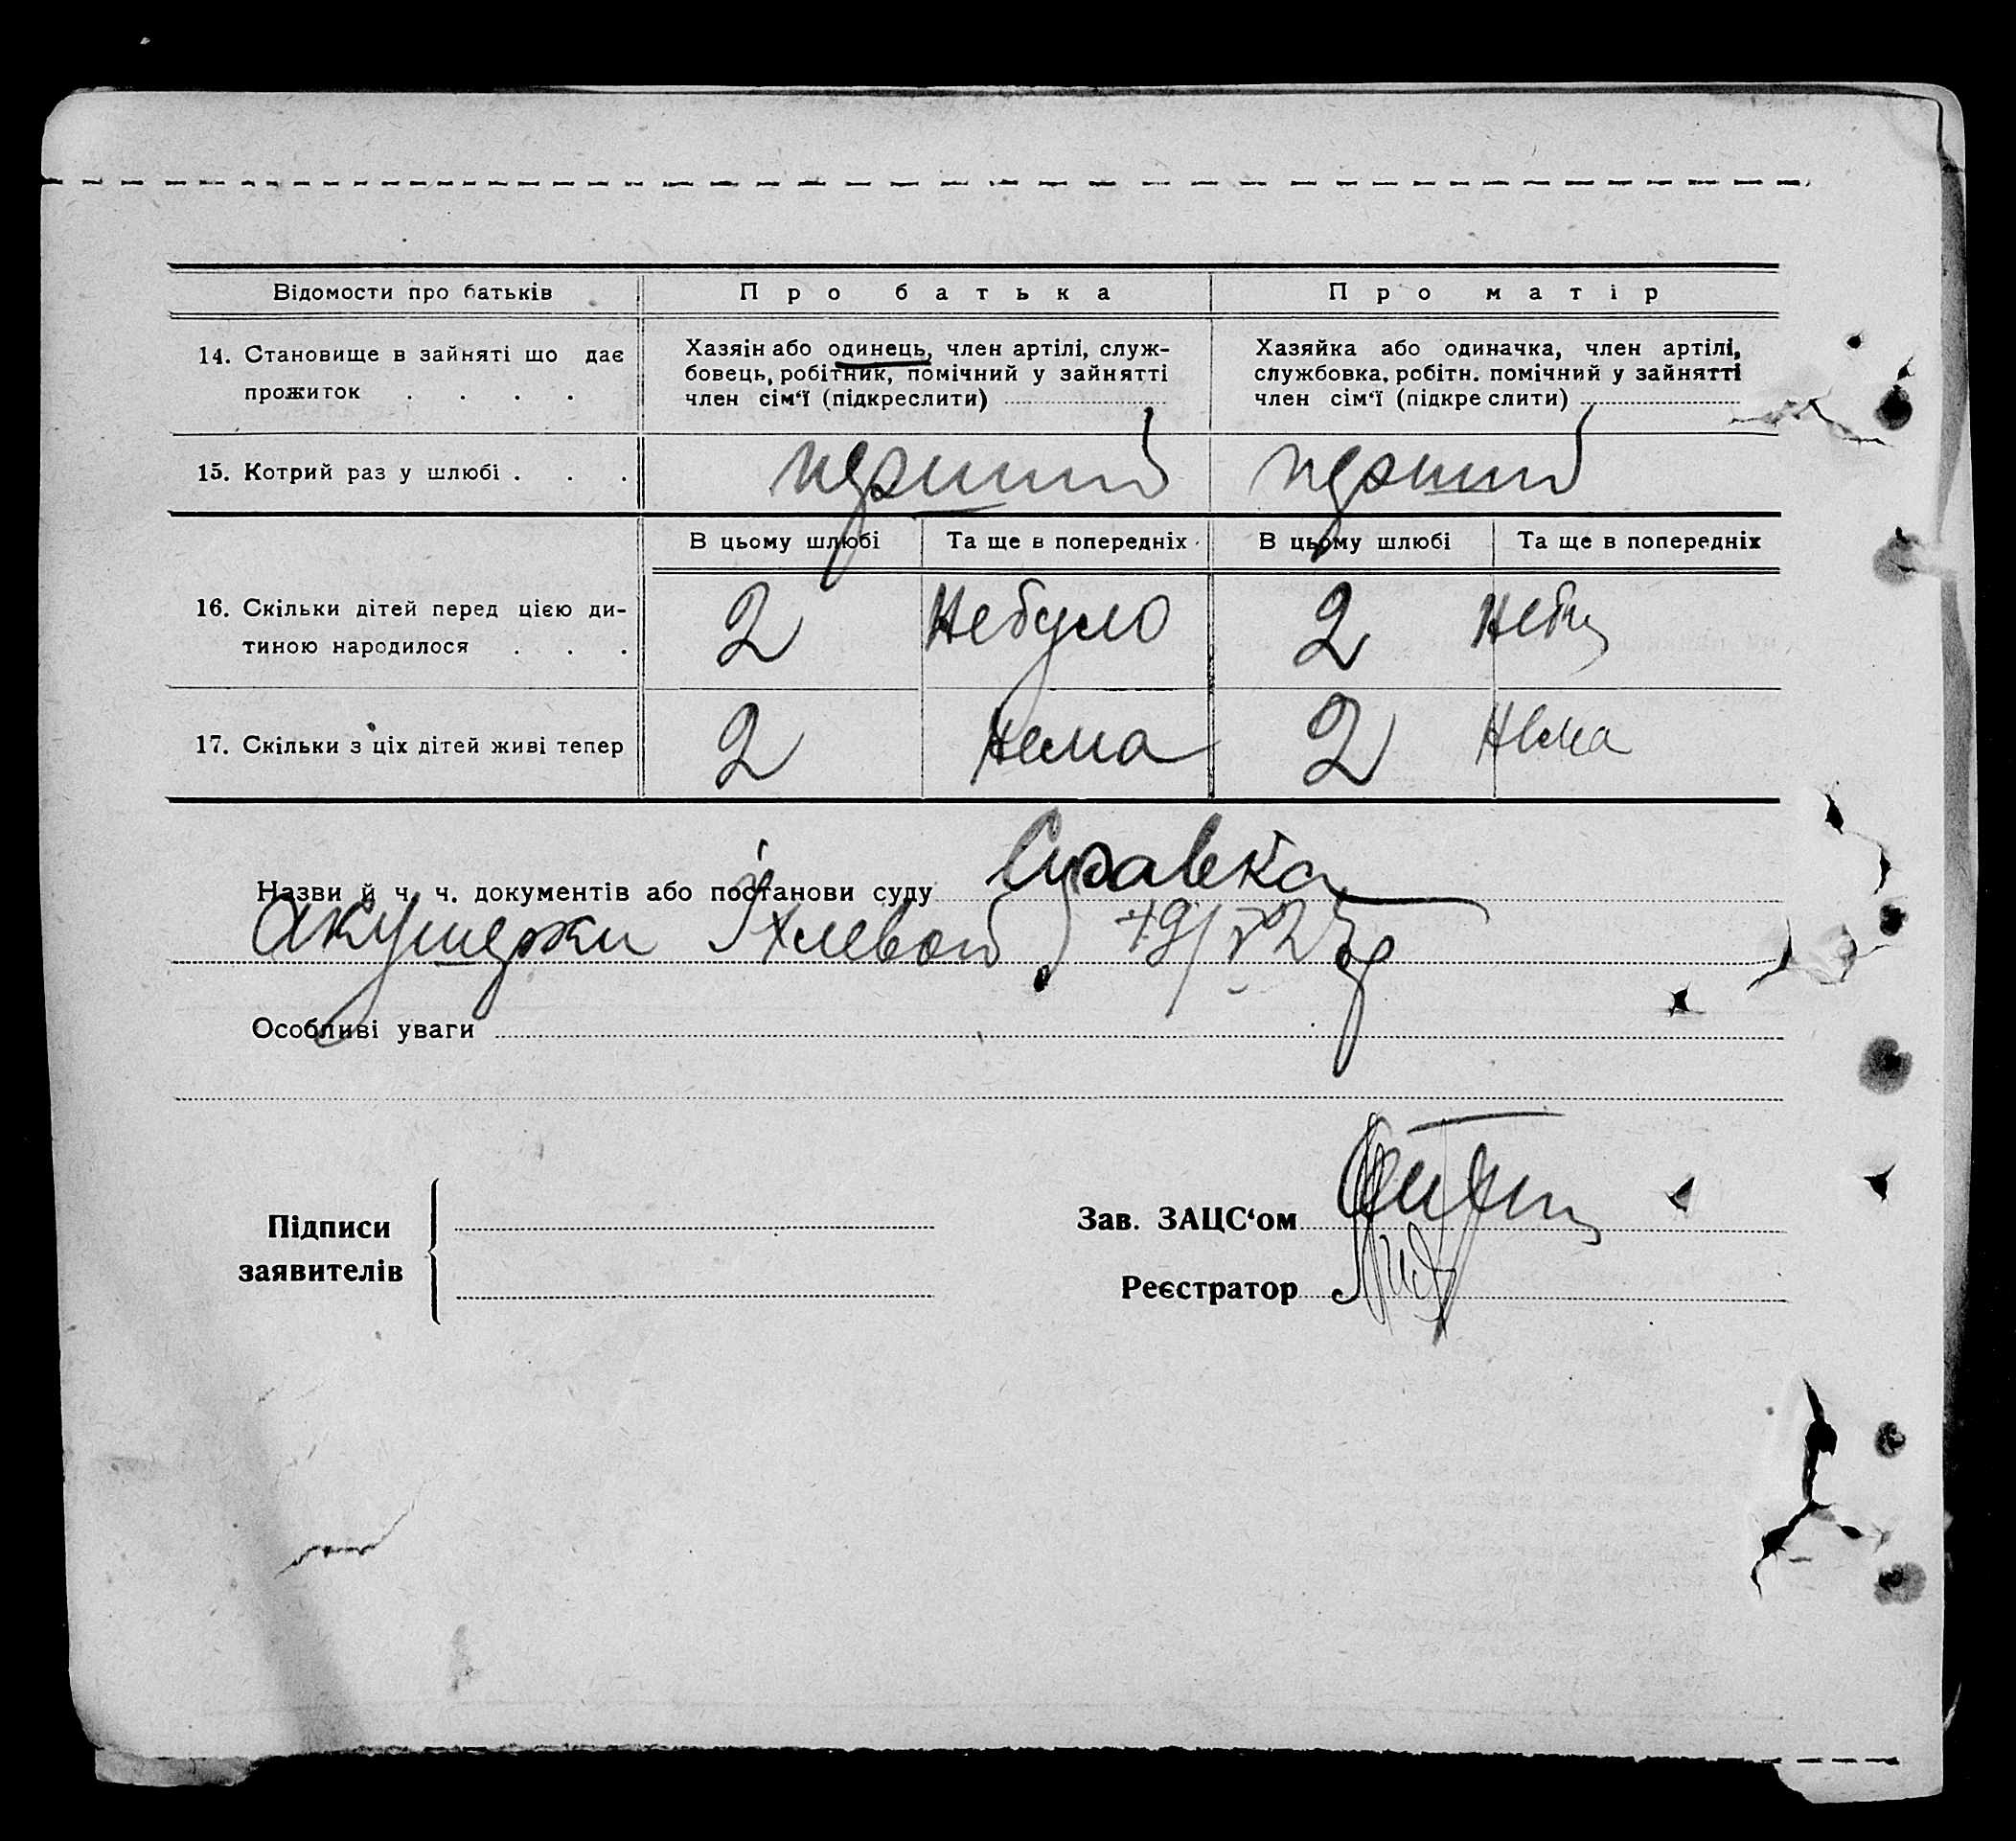 Відомости про батьків Про батька Про матір
14. Становище в зайняті що дає
прожиток . . . .
Хазяін або одинець, член артілі, служ-
бовець, робітник, помічний у зайнятті
член сім'ї (підкреслити)
Хазяйка або одиначка, член артілі,
службовка, робітн. помічний у зайнятті
член сім'ї (підкреслити)
15. Котрий раз у шлюбі . . . перший перший
В цьому шлюбі Та ще в попередніх В цьому шлюбі Та ще в попередніх
16. Скільки дітей перед цією ди-
тиною народилося . . .
2 Небуло 2
17. Скільки з ціх дітей живі тепер 2 Нема 2 Нема
Назви й ч. ч. документів або постанови суду Справка
акушерки
Особливі уваги
Підписи
заявителів
Зав. ЗАЦС'ом
Реєстратор